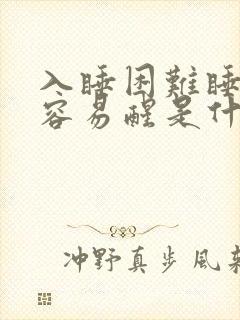 入睡困難睡
容易醒是什
冲野真步風